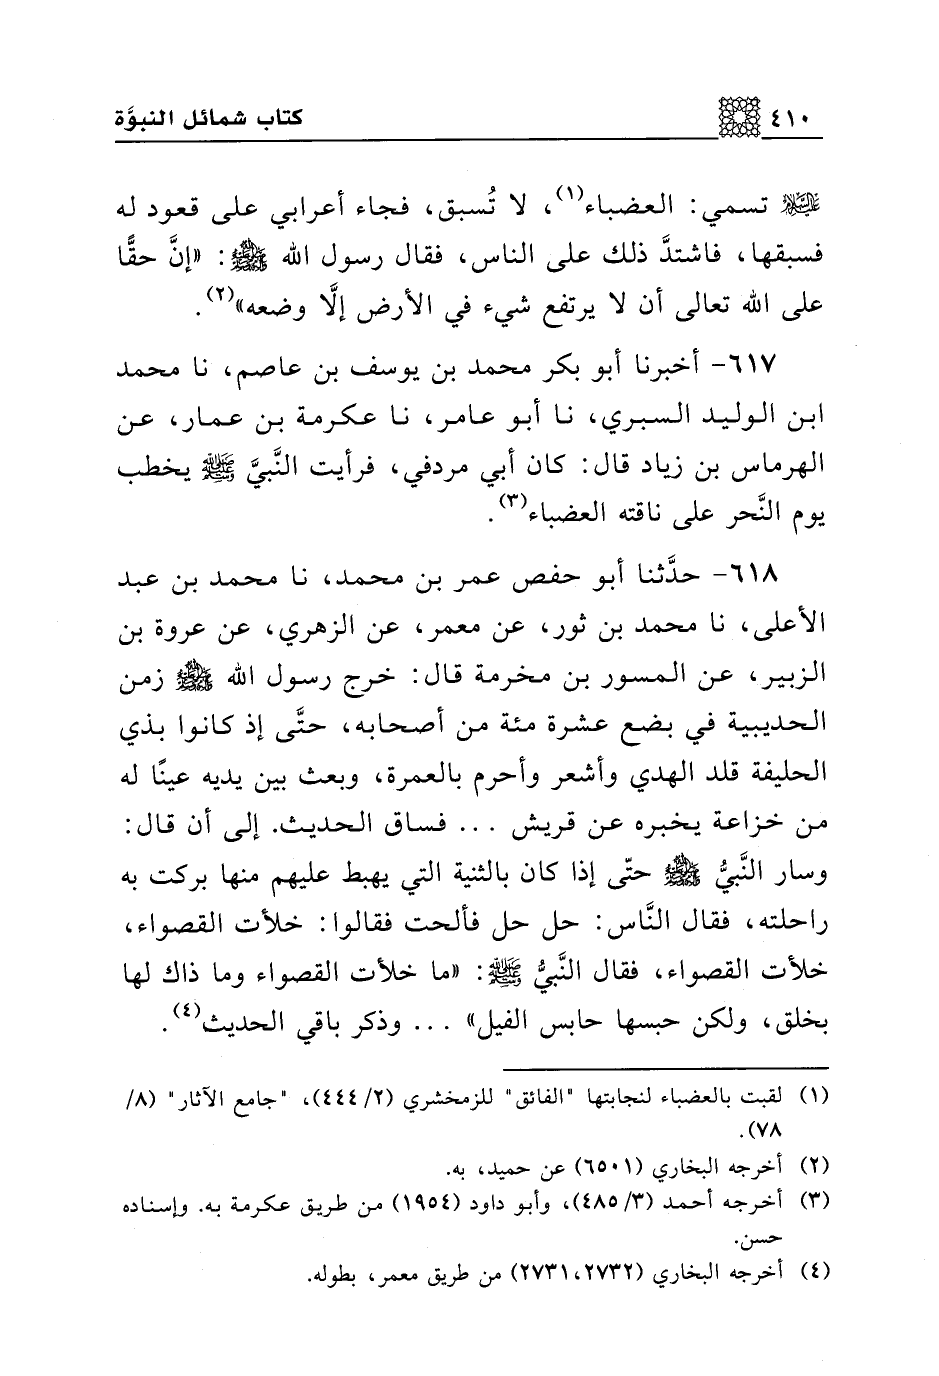 ٤١٠ كتاب شمائل النبوَّة
عليه السلام تسمي: العضباء(١)، لا تُسبق، فجاء أعرابي على قعود له
فسبقها، فاشتدَّ ذلك على الناس، فقال رسول الله ﷺ: «إنَّ حقًّا
على الله تعالى أن لا يرتفع شيء في الأرض إلَّا وضعه»(٢).
٦١٧- أخبرنا أبو بكر محمد بن يوسف بن عاصم، نا محمد
ابن الوليد السبري، نا أبو عامر، نا عكرمة بن عمار، عن
الهرماس بن زياد قال: كان أبي مردفي، فرأيت النَّبيَّ ﷺ يخطب
يوم النَّحر على ناقته العضباء(٣).
٦١٨- حدَّثنا أبو حفص عمر بن محمد، نا محمد بن عبد
الأعلى، نا محمد بن ثور، عن معمر، عن الزهري، عن عروة بن
الزبير، عن المسور بن مخرمة قال: خرج رسول الله ﷺ زمن
الحديبية في بضع عشرة مئة من أصحابه، حتَّى إذ كانوا بذي
الحليفة قلد الهدي وأشعر وأحرم بالعمرة، وبعث بين يديه عينًا له
من خزاعة يخبره عن قريش ... فساق الحديث. إلى أن قال:
وسار النَّبيُّ ﷺ حتّى إذا كان بالثنية التي يهبط عليهم منها بركت به
راحلته، فقال النَّاس: حل حل فألحت فقالوا: خلأت القصواء،
خلأت القصواء، فقال النَّبيُّ ﷺ: «ما خلأت القصواء وما ذاك لها
بخلق، ولكن حبسها حابس الفيل» ... وذكر باقي الحديث(٤).
(١) لقبت بالعضباء لنجابتها "الفائق" للزمخشري (٢/ ٤٤٤)، "جامع الآثار" (٨/
٧٨).
(٢) أخرجه البخاري (٦٥٠١) عن حميد، به.
(٣) أخرجه أحمد (٣/ ٤٨٥)، وأبو داود (١٩٥٤) من طريق عكرمة به. وإسناده
حسن.
(٤) أخرجه البخاري (٢٧٣١،٢٧٣٢) من طريق معمر، بطوله.